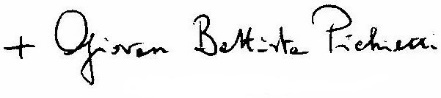 + Giovan Battista Pichierri